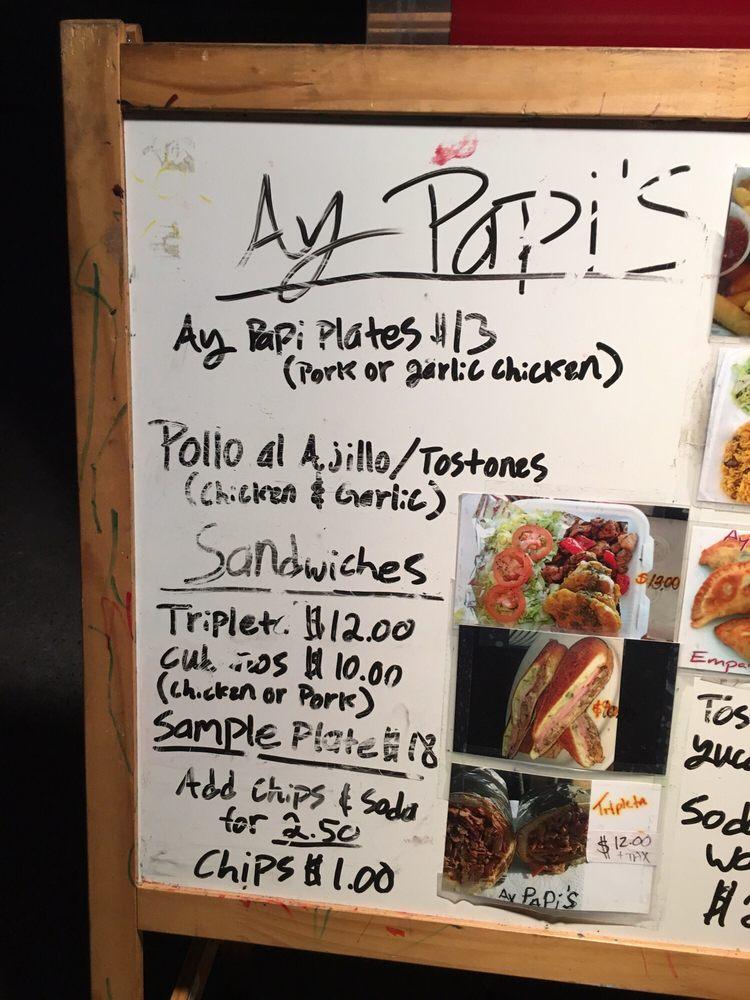 Ay Papi's
Ay Papi Plates $13
(Pork or garlic chicken)
Pollo al Ajillo/Tostones
(Chicken & Garlic)
Sandwiches
$13.00
Triplet $12.00
$10.00
(Chicken or Pork)
Sample Plate $18
Add Chips & Soda
for 2.50
Chips $1.00
Tripleta
$12.00
+ TAX
Ay PAPi'S
Ay
Empa
Tos
yuc
Soda
wa
$2